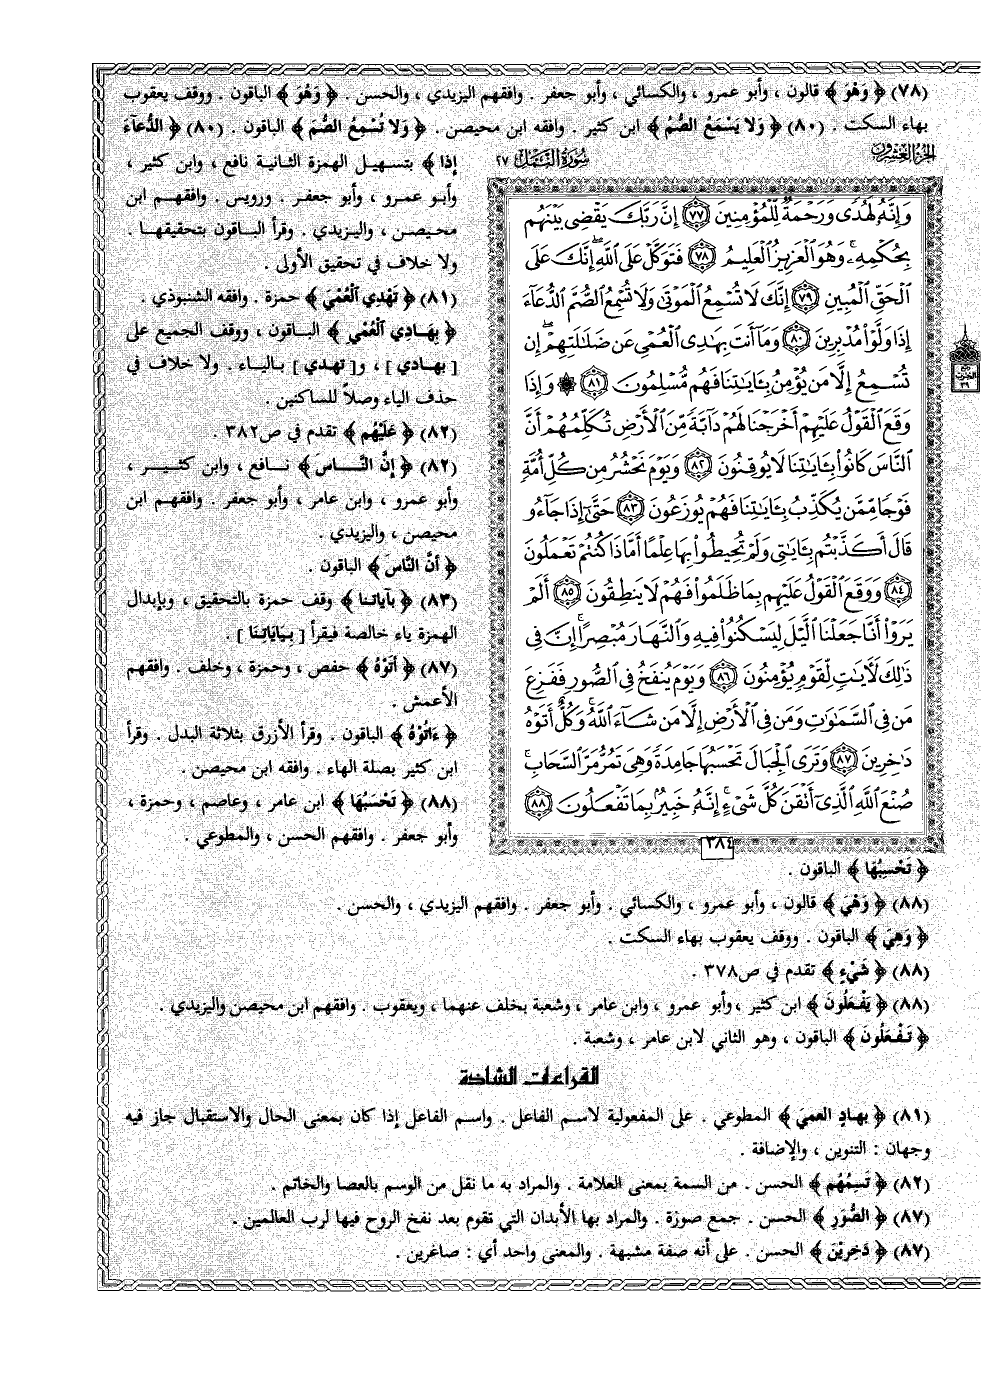 (٧٨) ﴿ وَهْوَ ﴾ قالون ، وأبو عمرو ، والكسائي ، وأبو جعفر . وافقهم اليزيدي ، والحسن . ﴿ وَهُوَ ﴾ الباقون . ووقف يعقوب
بهاء السكت . (٨٠) ﴿ وَلا يَسْمَعُ الصُّمُّ ﴾ ابن كثير . وافقه ابن محيصن . ﴿ وَلا تُسْمِعُ الصُّمَّ ﴾ الباقون . (٨٠) ﴿ الدُّعَاءَ
إذا ﴾ بتسهيل الهمزة الثانية نافع ، وابن كثير ،
وأبو عمرو ، وأبو جعفر . ورويس . وافقهم ابن
محيصن ، واليزيدي . وقرأ الباقون بتحقيقها .
ولا خلاف في تحقيق الأولى .
(٨١) ﴿ تَهْدِي الْعُمْيَ ﴾ حمزة . وافقه الشنبوذي .
﴿ بِهَادِي الْعُمْيِ ﴾ الباقون ، ووقف الجميع على
[ بهادي ] ، و[ تهدي ] بالياء . ولا خلاف في
حذف الياء وصلاً للساكنين .
(٨٢) ﴿ عَلَيْهِم ﴾ تقدم في ص٣٨٢ .
(٨٢) ﴿ إِنَّ النَّاسَ ﴾ نافع ، وابن كثير ،
وأبو عمرو ، وابن عامر ، وأبو جعفر . وافقهم ابن
محيصن ، واليزيدي .
﴿ أَنَّ النَّاسَ ﴾ الباقون .
(٨٣) ﴿ بآياتنا ﴾ وقف حمزة بالتحقيق ، وبإبدال
الهمزة ياء خالصة فيقرأ [ بِيَايَاتِنَا ] .
(٨٧) ﴿ أَتَوْهُ ﴾ حفص ، وحمزة ، وخلف . وافقهم
الأعمش .
﴿ ءَاتُوْهُ ﴾ الباقون . وقرأ الأزرق بثلاثة البدل . وقرأ
ابن كثير بصلة الهاء . وافقه ابن محيصن .
(٨٨) ﴿ تَحْسَبُهَا ﴾ ابن عامر ، وعاصم ، وحمزة ،
وأبو جعفر . وافقهم الحسن ، والمطوعي .
الجزء العشرون
سورة النمل ٢٧
وَإِنَّهُۥ لَهُدًى وَرَحْمَةٌ لِّلْمُؤْمِنِينَ ٧٧ إِنَّ رَبَّكَ يَقْضِى بَيْنَهُم
بِحُكْمِهِۦ ۚ وَهُوَ ٱلْعَزِيزُ ٱلْعَلِيمُ ٧٨ فَتَوَكَّلْ عَلَى ٱللَّهِ ۖ إِنَّكَ عَلَى
ٱلْحَقِّ ٱلْمُبِينِ ٧٩ إِنَّكَ لَا تُسْمِعُ ٱلْمَوْتَىٰ وَلَا تُسْمِعُ ٱلصُّمَّ ٱلدُّعَآءَ
إِذَا وَلَّوْا۟ مُدْبِرِينَ ٨٠ وَمَآ أَنتَ بِهَٰدِى ٱلْعُمْىِ عَن ضَلَٰلَتِهِمْ ۖ إِن
تُسْمِعُ إِلَّا مَن يُؤْمِنُ بِـَٔايَٰتِنَا فَهُم مُّسْلِمُونَ ٨١ ۞ وَإِذَا
وَقَعَ ٱلْقَوْلُ عَلَيْهِمْ أَخْرَجْنَا لَهُمْ دَآبَّةً مِّنَ ٱلْأَرْضِ تُكَلِّمُهُمْ أَنَّ
ٱلنَّاسَ كَانُوا۟ بِـَٔايَٰتِنَا لَا يُوقِنُونَ ٨٢ وَيَوْمَ نَحْشُرُ مِن كُلِّ أُمَّةٍ
فَوْجًا مِّمَّن يُكَذِّبُ بِـَٔايَٰتِنَا فَهُمْ يُوزَعُونَ ٨٣ حَتَّىٰٓ إِذَا جَآءُو
قَالَ أَكَذَّبْتُم بِـَٔايَٰتِى وَلَمْ تُحِيطُوا۟ بِهَا عِلْمًا أَمَّاذَا كُنتُمْ تَعْمَلُونَ
٨٤ وَوَقَعَ ٱلْقَوْلُ عَلَيْهِم بِمَا ظَلَمُوا۟ فَهُمْ لَا يَنطِقُونَ ٨٥ أَلَمْ
يَرَوْا۟ أَنَّا جَعَلْنَا ٱلَّيْلَ لِيَسْكُنُوا۟ فِيهِ وَٱلنَّهَارَ مُبْصِرًا ۚ إِنَّ فِى
ذَٰلِكَ لَـَٔايَٰتٍ لِّقَوْمٍ يُؤْمِنُونَ ٨٦ وَيَوْمَ يُنفَخُ فِى ٱلصُّورِ فَفَزِعَ
مَن فِى ٱلسَّمَٰوَٰتِ وَمَن فِى ٱلْأَرْضِ إِلَّا مَن شَآءَ ٱللَّهُ ۚ وَكُلٌّ أَتَوْهُ
دَٰخِرِينَ ٨٧ وَتَرَى ٱلْجِبَالَ تَحْسَبُهَا جَامِدَةً وَهِىَ تَمُرُّ مَرَّ ٱلسَّحَابِ ۚ
صُنْعَ ٱللَّهِ ٱلَّذِىٓ أَتْقَنَ كُلَّ شَىْءٍ ۚ إِنَّهُۥ خَبِيرٌۢ بِمَا تَفْعَلُونَ ٨٨
ربع
الحزب
٣٩
٣٨٤
﴿ تَحْسِبُهَا ﴾ الباقون .
(٨٨) ﴿ وَهْيَ ﴾ قالون ، وأبو عمرو ، والكسائي . وأبو جعفر . وافقهم اليزيدي ، والحسن .
﴿ وَهِيَ ﴾ الباقون . ووقف يعقوب بهاء السكت .
(٨٨) ﴿ شَيْءٍ ﴾ تقدم في ص٣٧٨ .
(٨٨) ﴿ يَفْعَلُونَ ﴾ ابن كثير ، وأبو عمرو ، وابن عامر ، وشعبة بخلف عنهما ، ويعقوب . وافقهم ابن محيصن واليزيدي .
﴿ تَفْعَلُونَ ﴾ الباقون ، وهو الثاني لابن عامر ، وشعبة .
القراءات الشاذة
(٨١) ﴿ بهادٍ العميَ ﴾ المطوعي . على المفعولية لاسم الفاعل . واسم الفاعل إذا كان بمعنى الحال والاستقبال جاز فيه
وجهان : التنوين ، والإضافة .
(٨٢) ﴿ تَسِمُهُم ﴾ الحسن . من السمة بمعنى العلامة . والمراد به ما نقل من الوسم بالعصا والخاتم .
(٨٧) ﴿ الصُّوَرِ ﴾ الحسن . جمع صورة . والمراد بها الأبدان التي تقوم بعد نفخ الروح فيها لرب العالمين .
(٨٧) ﴿ دَخِرِيْنَ ﴾ الحسن . على أنه صفة مشبهة . والمعنى واحد أي : صاغرين .